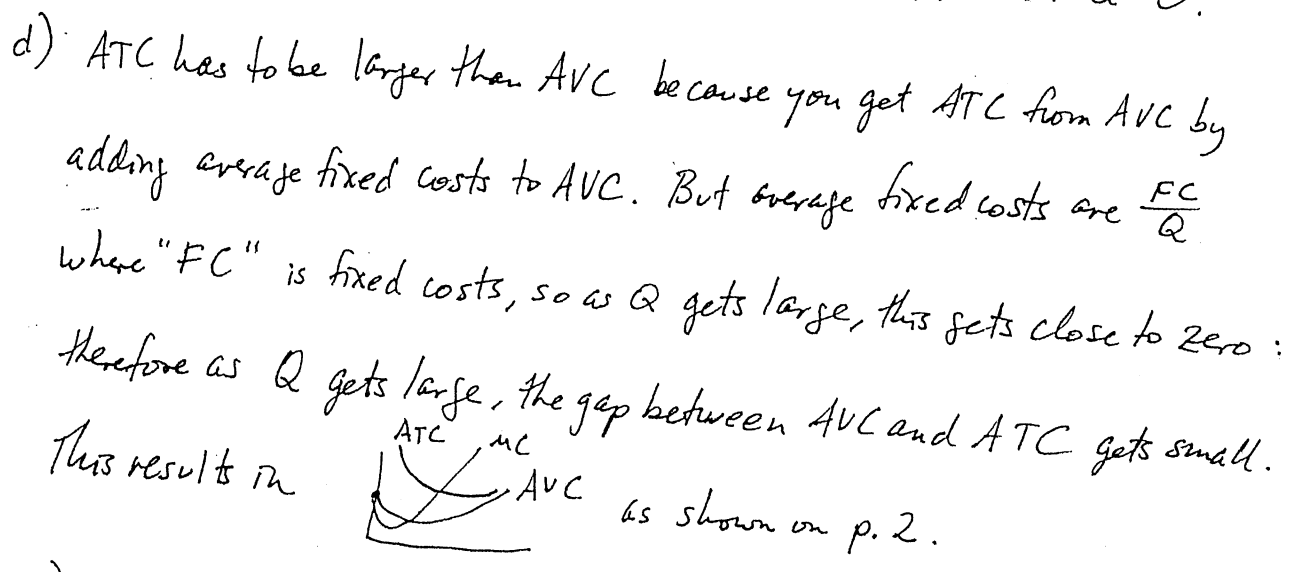 d) ATC has to be larger than AVC because you get ATC from AVC by
adding average fixed costs to AVC. But average fixed costs are FC/Q
where "FC" is fixed costs, so as Q gets large, this gets close to zero :
therefore as Q gets large, the gap between AVC and ATC gets small.
This results in ATC MC AVC as shown on p. 2.